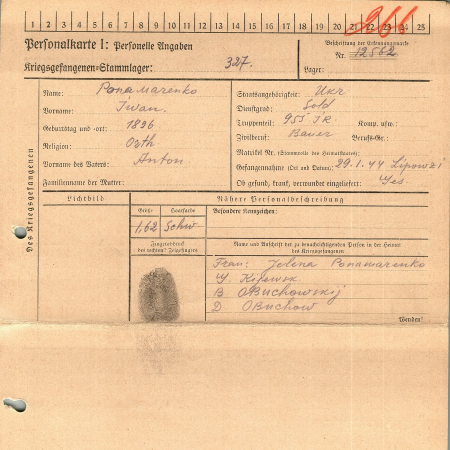 1 2 3 4 5 6 7 8 9 10 11 12 13 14 15 16 17 18 19 20 21 22 23 24 25
266
Personalkarte I: Personelle Angaben
Beschriftung der Erkennungsmarke
Nr. 12562
Kriegsgefangenen-Stammlager: 327.
Lager:
Des Kriegsgefangenen
Name: Ponamarenko
Vorname: Iwan
Geburtstag und -ort: 1896
Religion: Orth
Vorname des Vaters: Anton
Familienname der Mutter:
Staatsangehörigkeit: Ukr
Dienstgrad: Sold
Truppenteil: 955 IR Komp. usw.:
Zivilberuf: Bauer Berufs-Gr.:
Matrikel Nr. (Stammrolle des Heimatstaates):
Gefangennahme (Ort und Datum): 29.1.44 Lipowzi
Ob gesund, krank, verwundet eingeliefert: Ges.
Lichtbild
Nähere Personalbeschreibung
Größe Haarfarbe Besondere Kennzeichen:
1,62 Schw
Fingerabdruck
des rechten Zeigefingers
Name und Anschrift der zu benachrichtigenden Person in der Heimat
des Kriegsgefangenen
Frau: Jelena Ponamarenko
G. Kijewsk
B Obuchowskij
D Obuchow
Wenden!